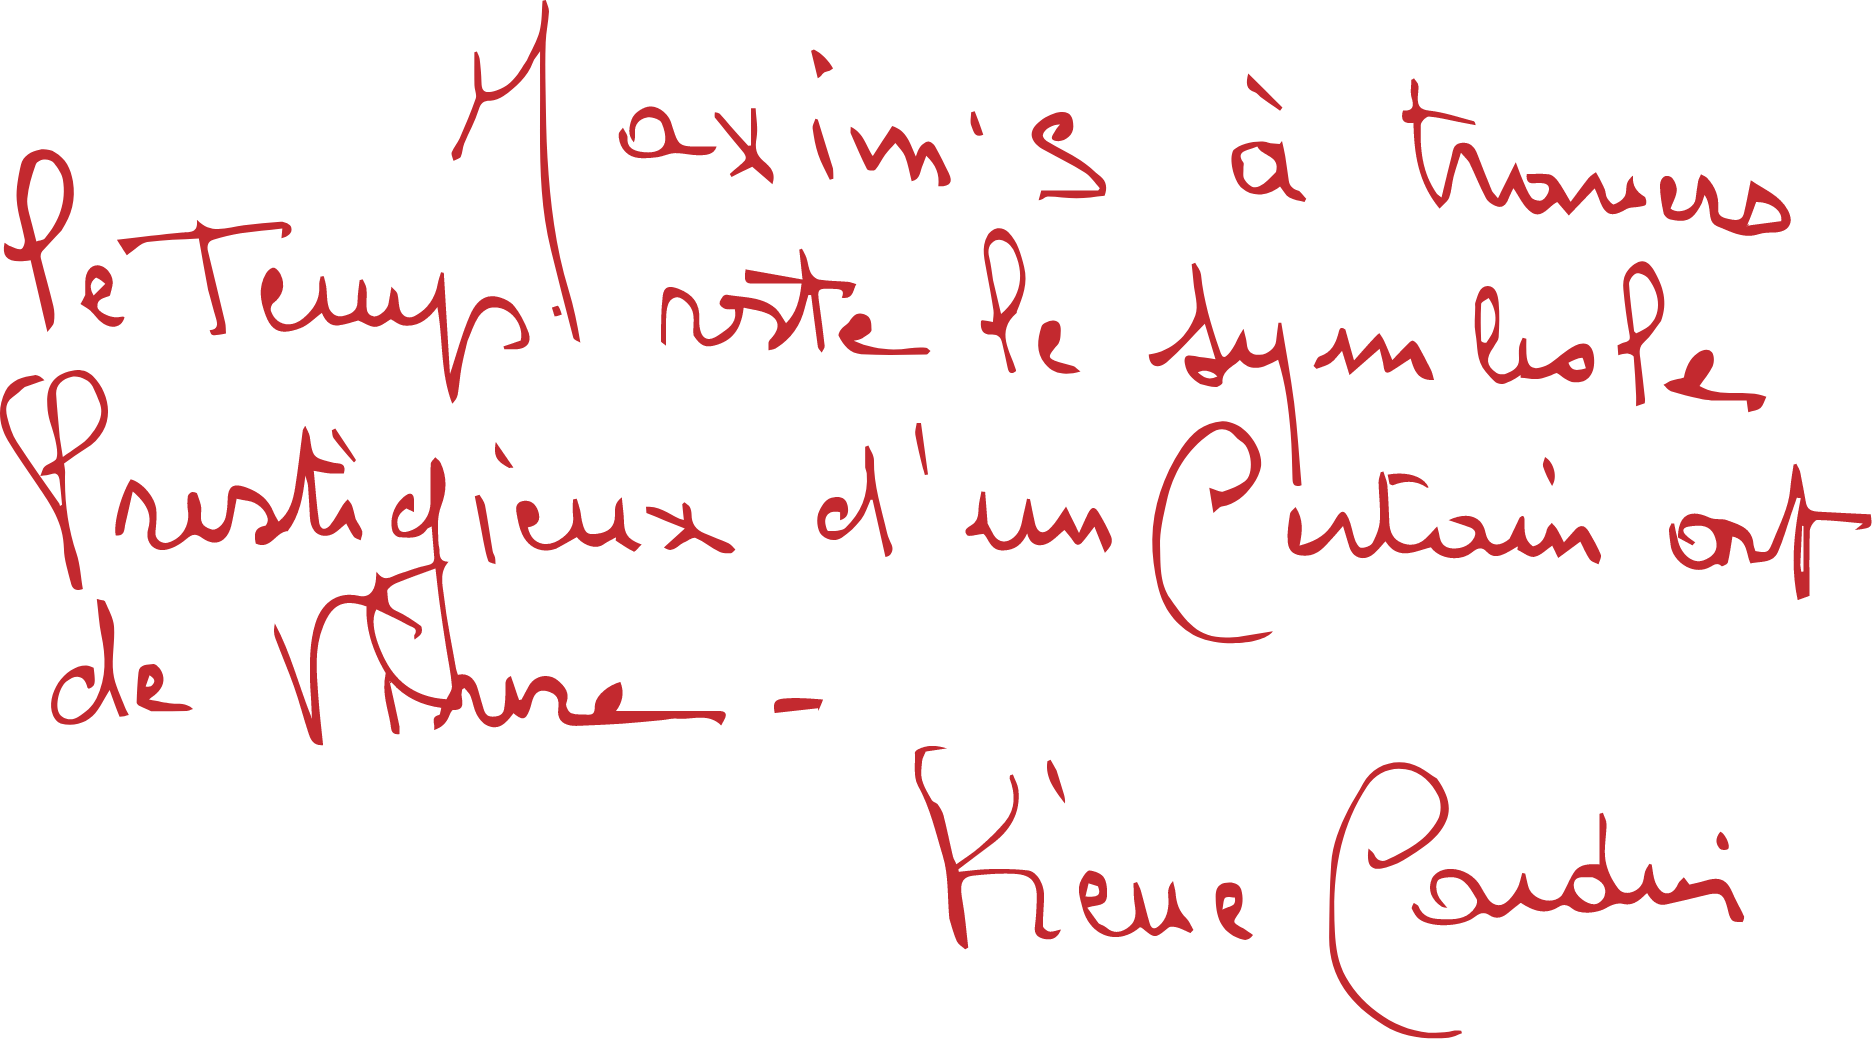 Maxim's à travers
le Temps. reste le symbole
Prestigieux d'un Certain art
de Vivre -
Pierre Cardin